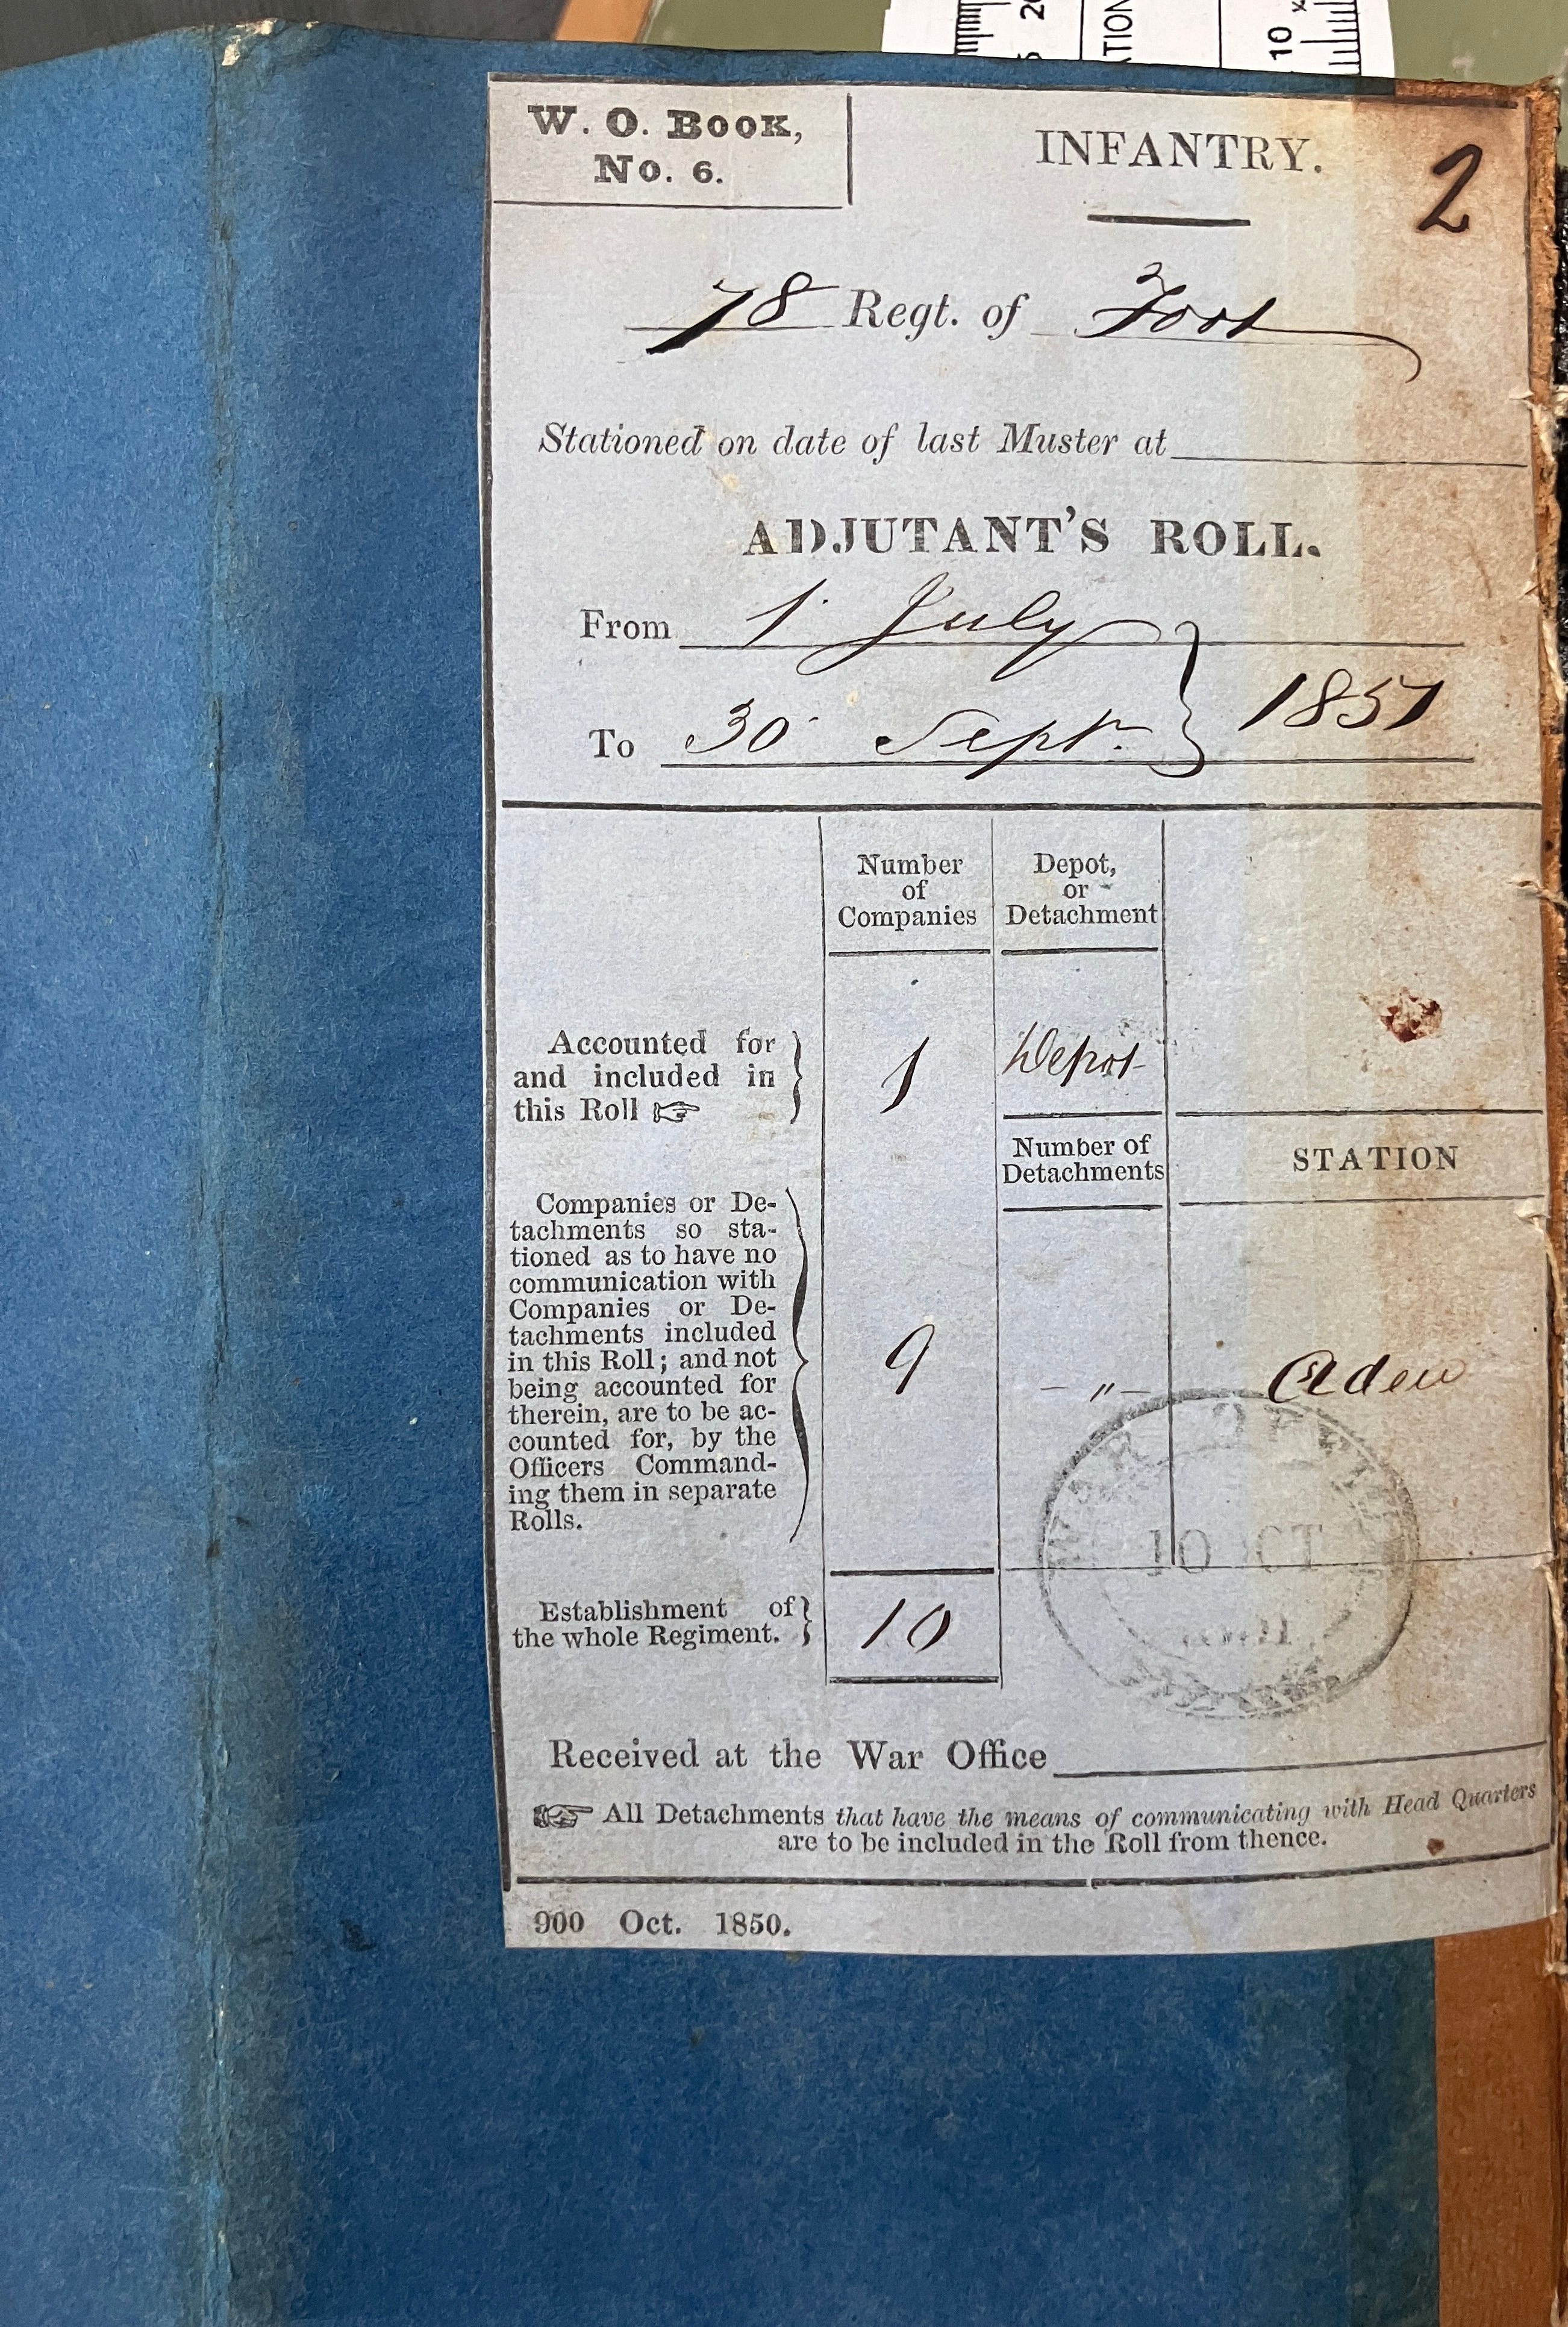 W. O. BOOK,
No. 6.
INFANTRY.
2
78 Regt. of Foot
Stationed on date of last Muster at
ADJUTANT'S ROLL.
From 1 July
To 30 Sept. 1851
Number
of
Companies
Depot,
or
Detachment
Accounted for
and included in
this Roll ☞
1
Depot
Number of
Detachments
STATION
Companies or De-
tachments so sta-
tioned as to have no
communication with
Companies or De-
tachments included
in this Roll; and not
being accounted for
therein, are to be ac-
counted for, by the
Officers Command-
ing them in separate
Rolls.
9
-"-
Aden
WAR
10 OCT
Establishment of
the whole Regiment.
10
Received at the War Office
☞ All Detachments that have the means of communicating with Head Quarters
are to be included in the Roll from thence.
900 Oct. 1850.
20
TION
10